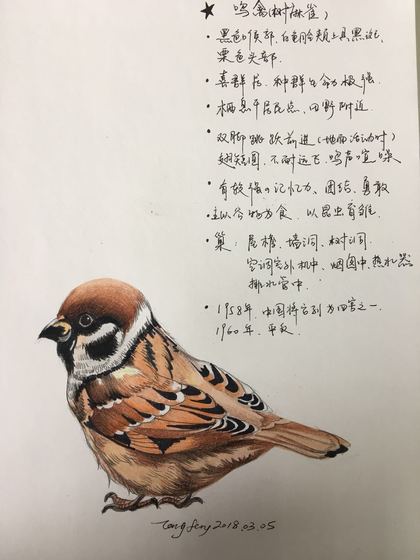 ★ 鸣禽(树麻雀)
• 黑色喉部,白色脸颊上具黑斑,
栗色头部.
• 喜群居. 种群生命力极强.
• 栖息于居民点,田野附近.
• 双脚跳跃前进(地面活动时)
翅短圆,不耐远飞,鸣声喧噪
• 有较强的记忆力、团结、勇敢
• 主以谷物为食,以昆虫育雏.
• 巢:屋檐、墙洞、树洞.
空调室外机中、烟囱中、热水器
排水管中.
• 1958年,中国将它列为四害之一.
1960年,平反.
2018.03.05